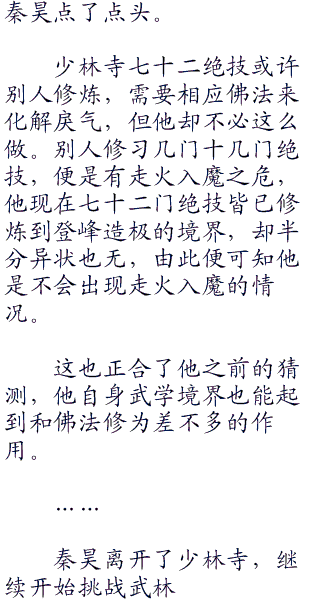 秦昊点了点头。
少林寺七十二绝技或许
别人修炼，需要相应佛法来
化解戾气，但他却不必这么
做。别人修习几门十几门绝
技，便是有走火入魔之危，
他现在七十二门绝技皆已修
炼到登峰造极的境界，却半
分异状也无，由此便可知他
是不会出现走火入魔的情
况。
这也正合了他之前的猜
测，他自身武学境界也能起
到和佛法修为差不多的作
用。
……
秦昊离开了少林寺，继
续开始挑战武林